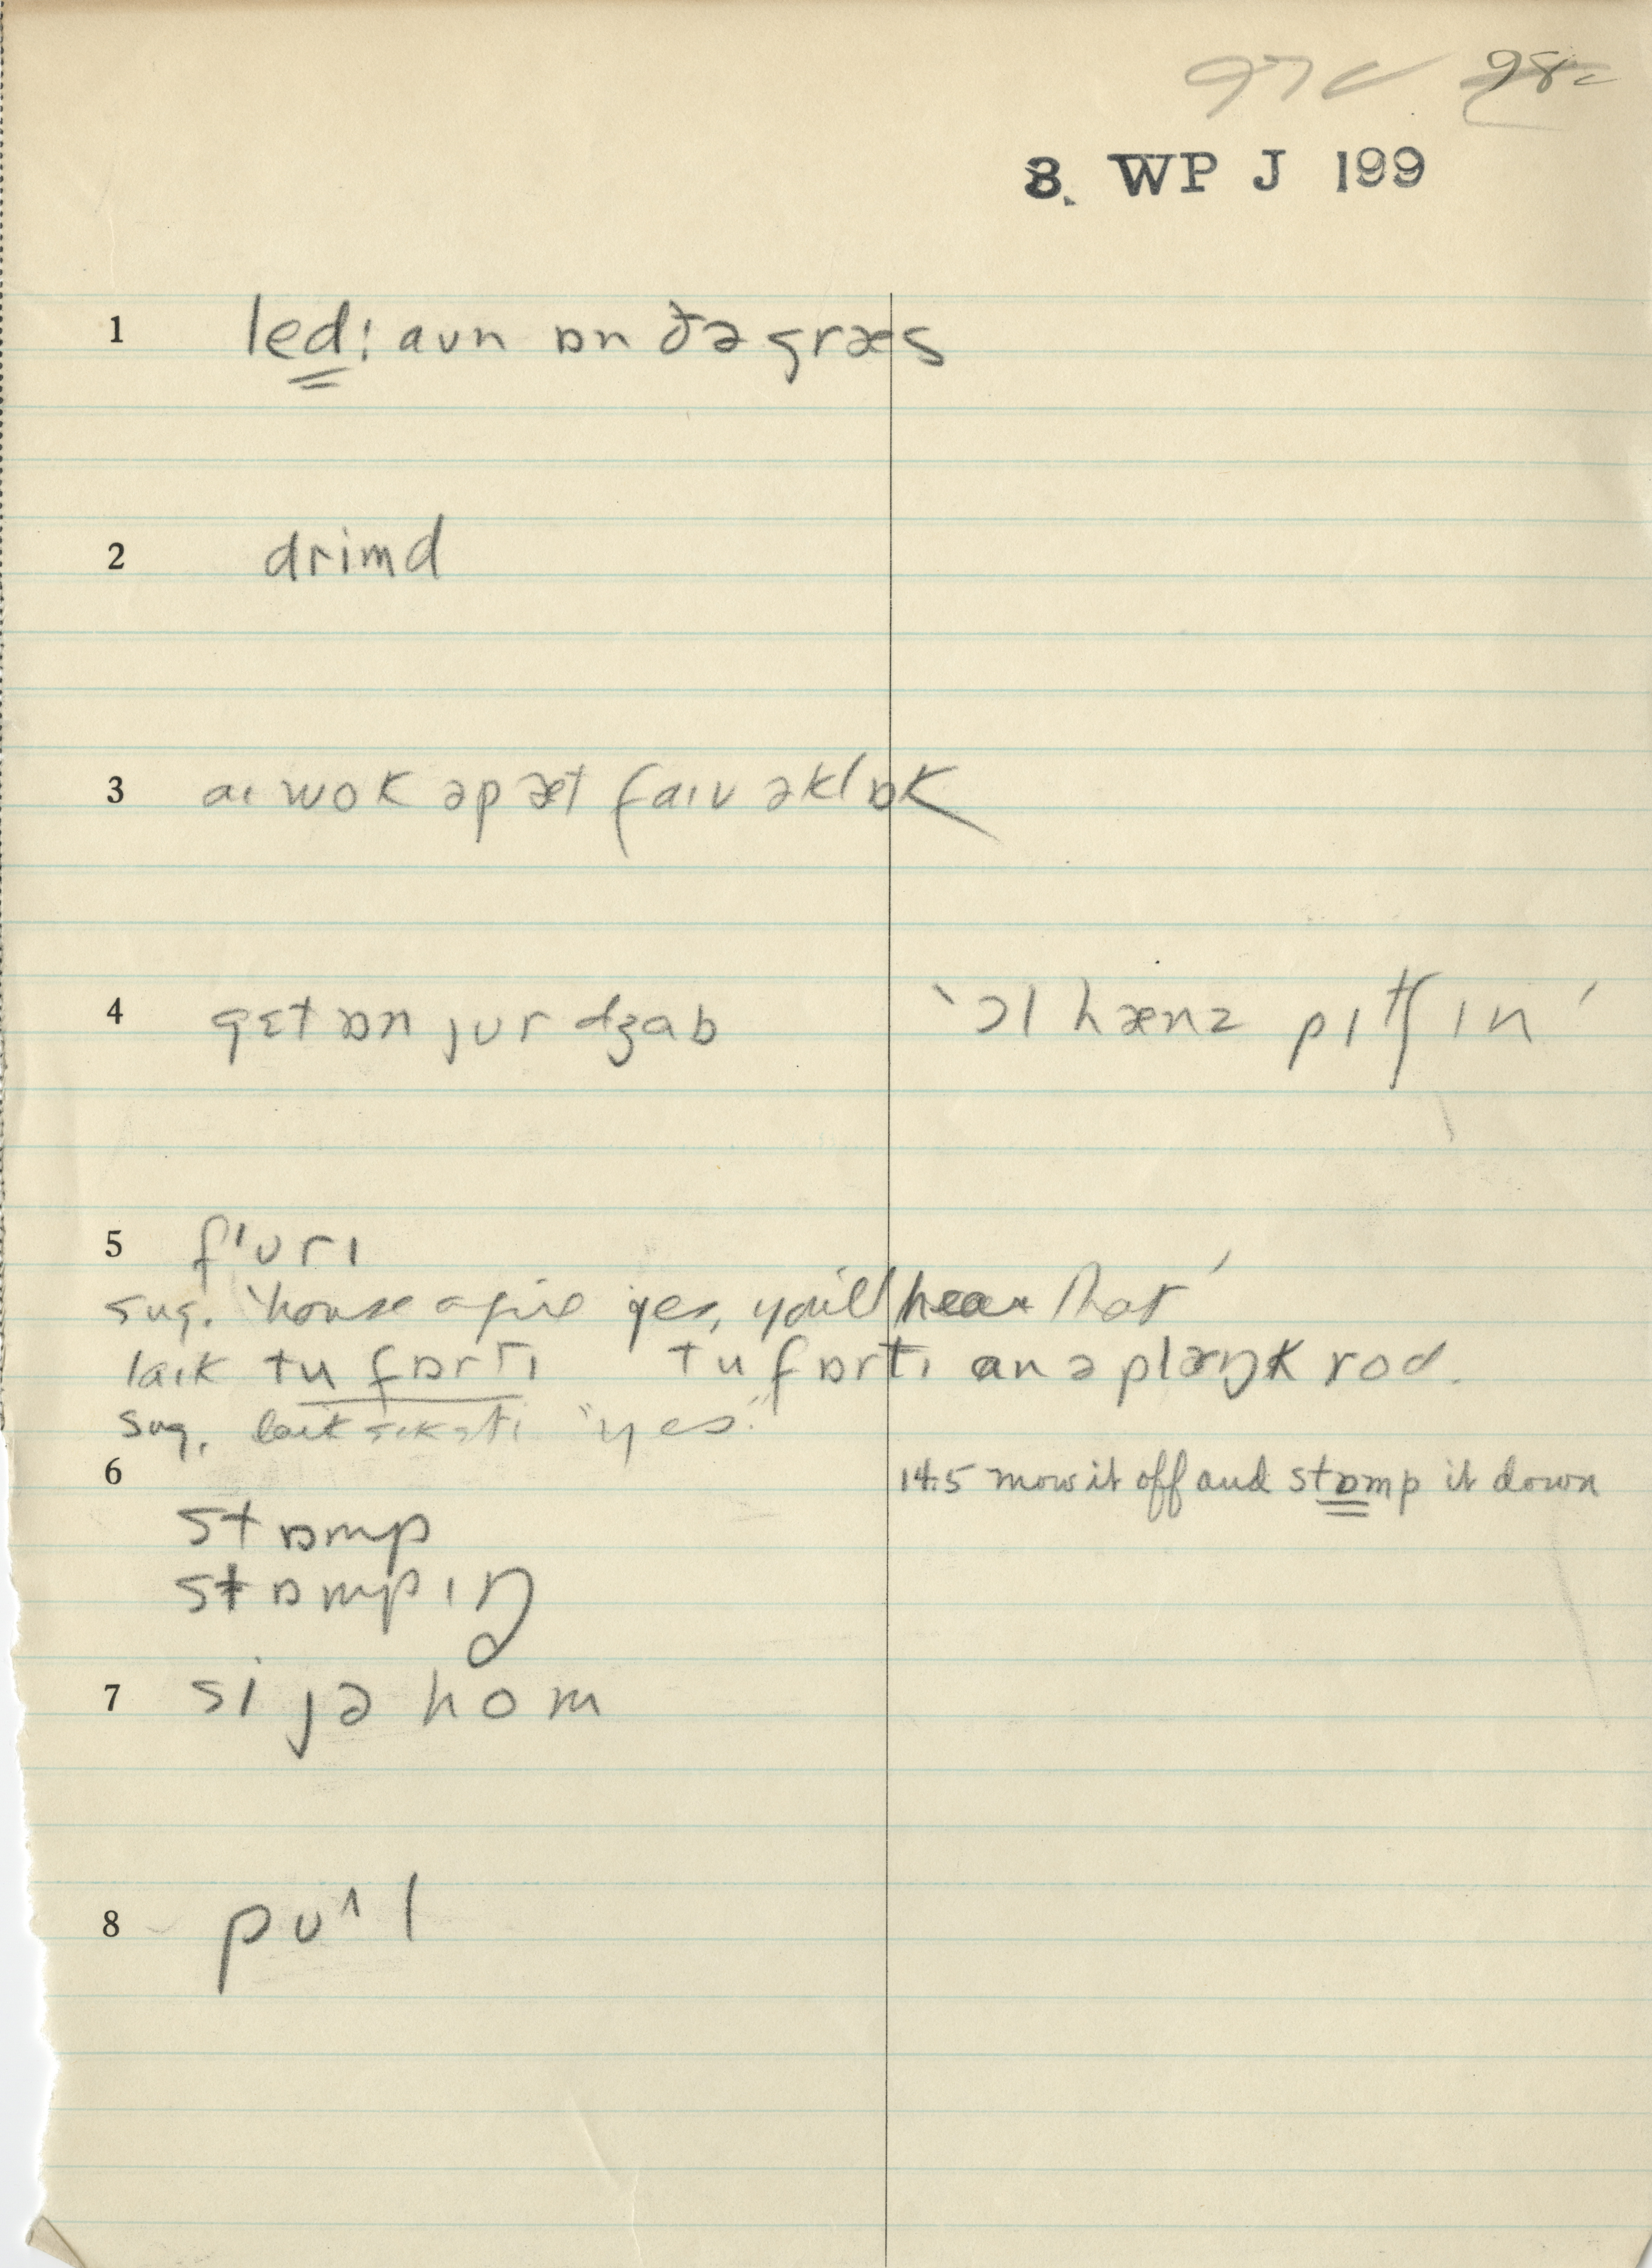 97c 98c
8. WP J 199
1 led: aʊn ɒn ðə græs
2 drimd
3 aɪ wok əp æt faɪv əklɒk
4 gɛt ɒn jʊr dʒab 'ɔl hænz pɪtʃ ɪn'
5 fɪʊrɪ
sug. 'house afire yes, you'll hear that'
laɪk tu fɒrtɪ tu fɒrtɪ an ə plæŋk rod.
sug. laɪk sɪkstɪ "yes."
6 14.5 mow it off and stɒmp it down
stɒmp
stɒmpɪŋ
7 si jə hom
8 pʊ^l